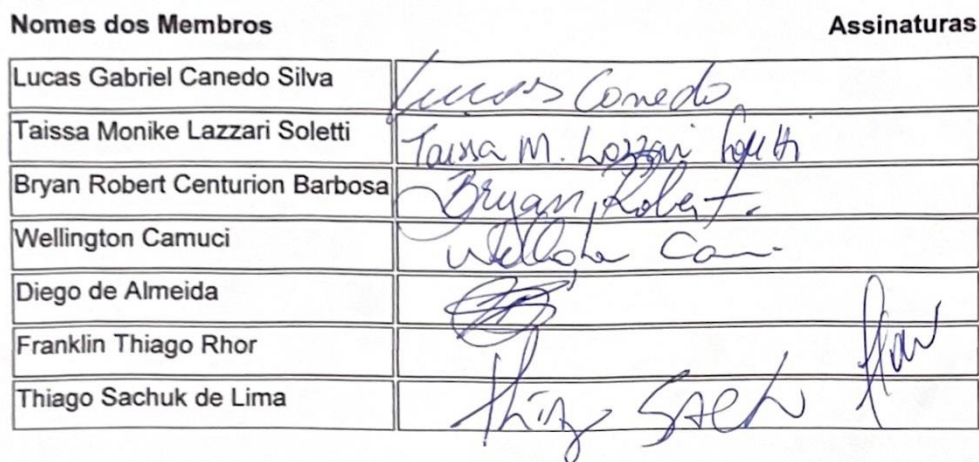 Nomes dos Membros Assinaturas
Lucas Gabriel Canedo Silva Lucas Canedo
Taissa Monike Lazzari Soletti Taissa M. Lazzari Soletti
Bryan Robert Centurion Barbosa Bryan Robert.
Wellington Camuci
Diego de Almeida
Franklin Thiago Rhor
Thiago Sachuk de Lima